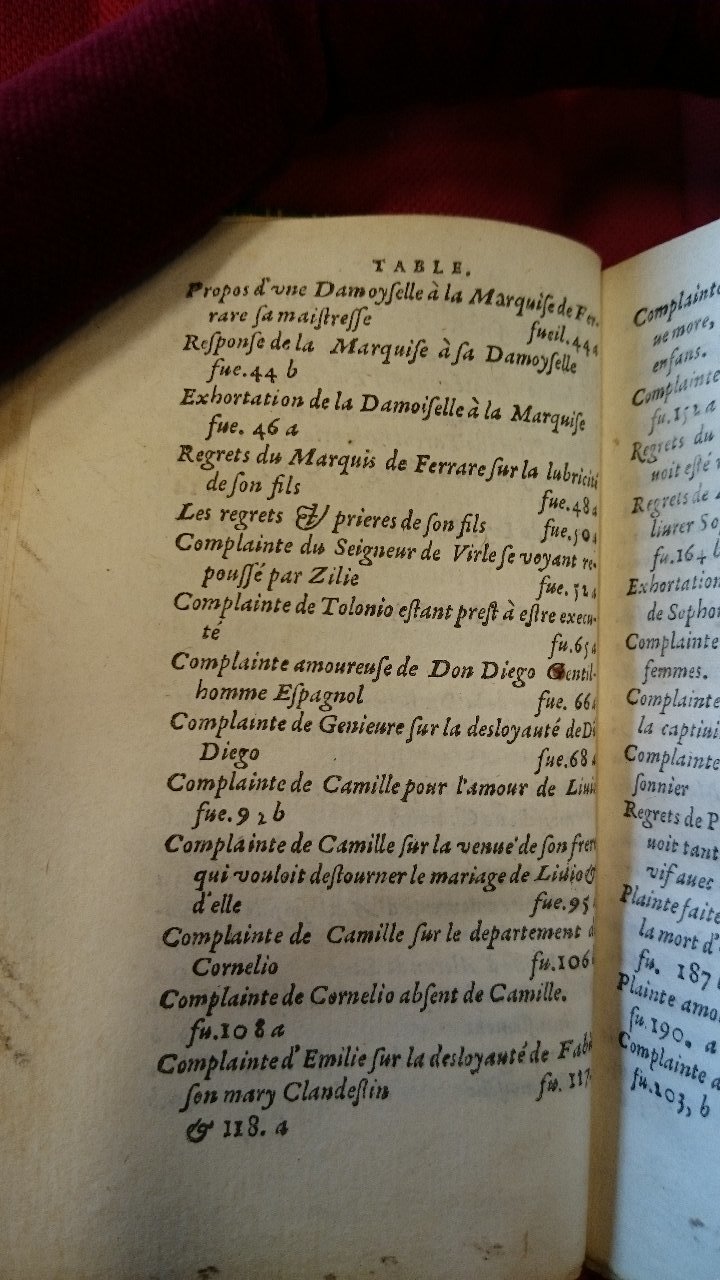 TABLE.
Propos d'vne Damoyſelle à la Marquiſe de Fer-
rare ſa maiſtreſſe fueil.44a
Reſponſe de la Marquiſe à ſa Damoyſelle
fue.44 b
Exhortation de la Damoiſelle à la Marquiſe
fue. 46 a
Regrets du Marquis de Ferrare ſur la lubricité
de ſon fils fue.48a
Les regrets & prieres de ſon fils fue.50a
Complainte du Seigneur de Virle ſe voyant re-
pouſſé par Zilie fue.52a
Complainte de Tolonio eſtant preſt à eſtre execu-
té fu.65a
Complainte amoureuſe de Don Diego Gentil-
homme Eſpagnol fue. 66
Complainte de Genieure ſur la desloyauté de
Diego fue.68
Complainte de Camille pour l'amour de
fue.92 b
Complainte de Camille ſur la venue de ſon
qui vouloit deſtourner le mariage de Liuio &
d'elle fue.95
Complainte de Camille ſur le departement
Cornelio fu.106
Complainte de Cornelio abſent de Camille.
fu.108 a
Complainte d'Emilie ſur la desloyauté de
ſon mary Clandeſtin fu. 117
& 118. a
Complainte
ue more,
enfans.
Complainte
fu.152 a
Regrets du
uoit eſté
Regrets de
liurer
fu.164
Exhortation
de
Complainte
femmes.
Complainte
la
Complainte
ſonnier
Regrets de
uoit tant
vif auec
Plainte faite
la mort
fu. 187
Plainte
fu.190. a
Complainte
fu.203, b